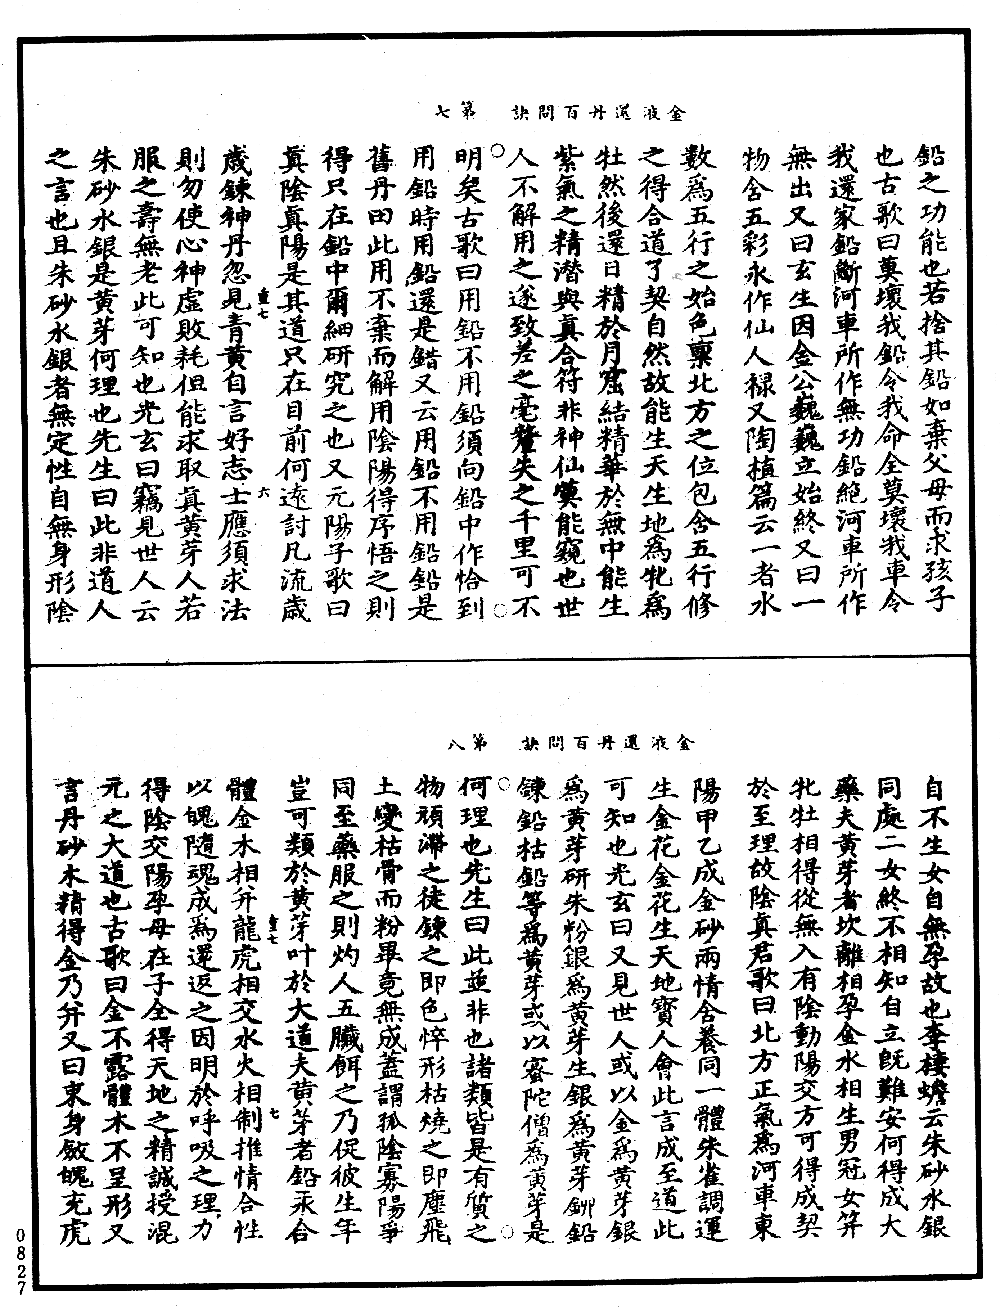 金液還丹百問訣　第七
鉛之功能也若捨其鉛如棄父母而求孩子
也古歌曰莫壞我鉛令我命全莫壞我車令
我還家鉛斷河車所作無功鉛絕河車所作
無出又曰玄生因金公巍巍立始終又曰一
物含五彩永作仙人祿又陶植篇云一者水
數為五行之始色稟北方之位包含五行修
之得合道了契自然故能生天生地為牝為
牡然後還日精於月窟結精華於無中能生
紫氣之精潛與真合符非神仙莫能窺也世
人不解用之遂致差之毫釐失之千里可不
明矣古歌曰用鉛不用鉛須向鉛中作恰到
用鉛時用鉛還是錯又云用鉛不用鉛鉛是
舊丹田此用不棄而解用陰陽得序悟之則
得只在鉛中爾細研究之也又元陽子歌曰
真陰真陽是其道只在目前何遠討凡流歲
歲鍊神丹忽見青黃自言好志士應須求法
重七　六
則勿使心神虛敗耗但能求取真黃芽人若
服之壽無老此可知也光玄曰竊見世人云
朱砂水銀是黃芽何理也先生曰此非道人
之言也且朱砂水銀者無定性自無身形陰
金液還丹百問訣　第八
自不生女自無孕故也李棲蟾云朱砂水銀
同處二女終不相知自立旣難安何得成大
藥夫黃芽者坎離相孕金水相生男冠女筓
牝牡相得從無入有陰動陽交方可得成契
於至理故陰真君歌曰北方正氣為河車東
陽甲乙成金砂兩情含養同一體朱雀調運
生金花金花生天地寶人會此言成至道此
可知也光玄曰又見世人或以金為黃芽銀
為黃芽研朱粉銀為黃芽生銀為黃芽鉚鉛
鍊鉛枯鉛等為黃芽或以蜜陀僧為黃芽是
何理也先生曰此並非也諸類皆是有質之
物頑滯之徒鍊之即色悴形枯燒之即塵飛
土變枯骨而粉畢竟無成蓋謂孤陰寡陽爭
同至藥服之則灼人五臟餌之乃促彼生年
豈可類於黃芽叶於大道夫黃芽者鉛汞合
重七　七
體金木相并龍虎相交水火相制推情合性
以魄隨魂成為還返之因明於呼吸之理力
得陰交陽孕母在子全得天地之精誠授混
元之大道也古歌曰金不露體木不呈形又
言丹砂木精得金乃并又曰束身斂魄充虎
0827